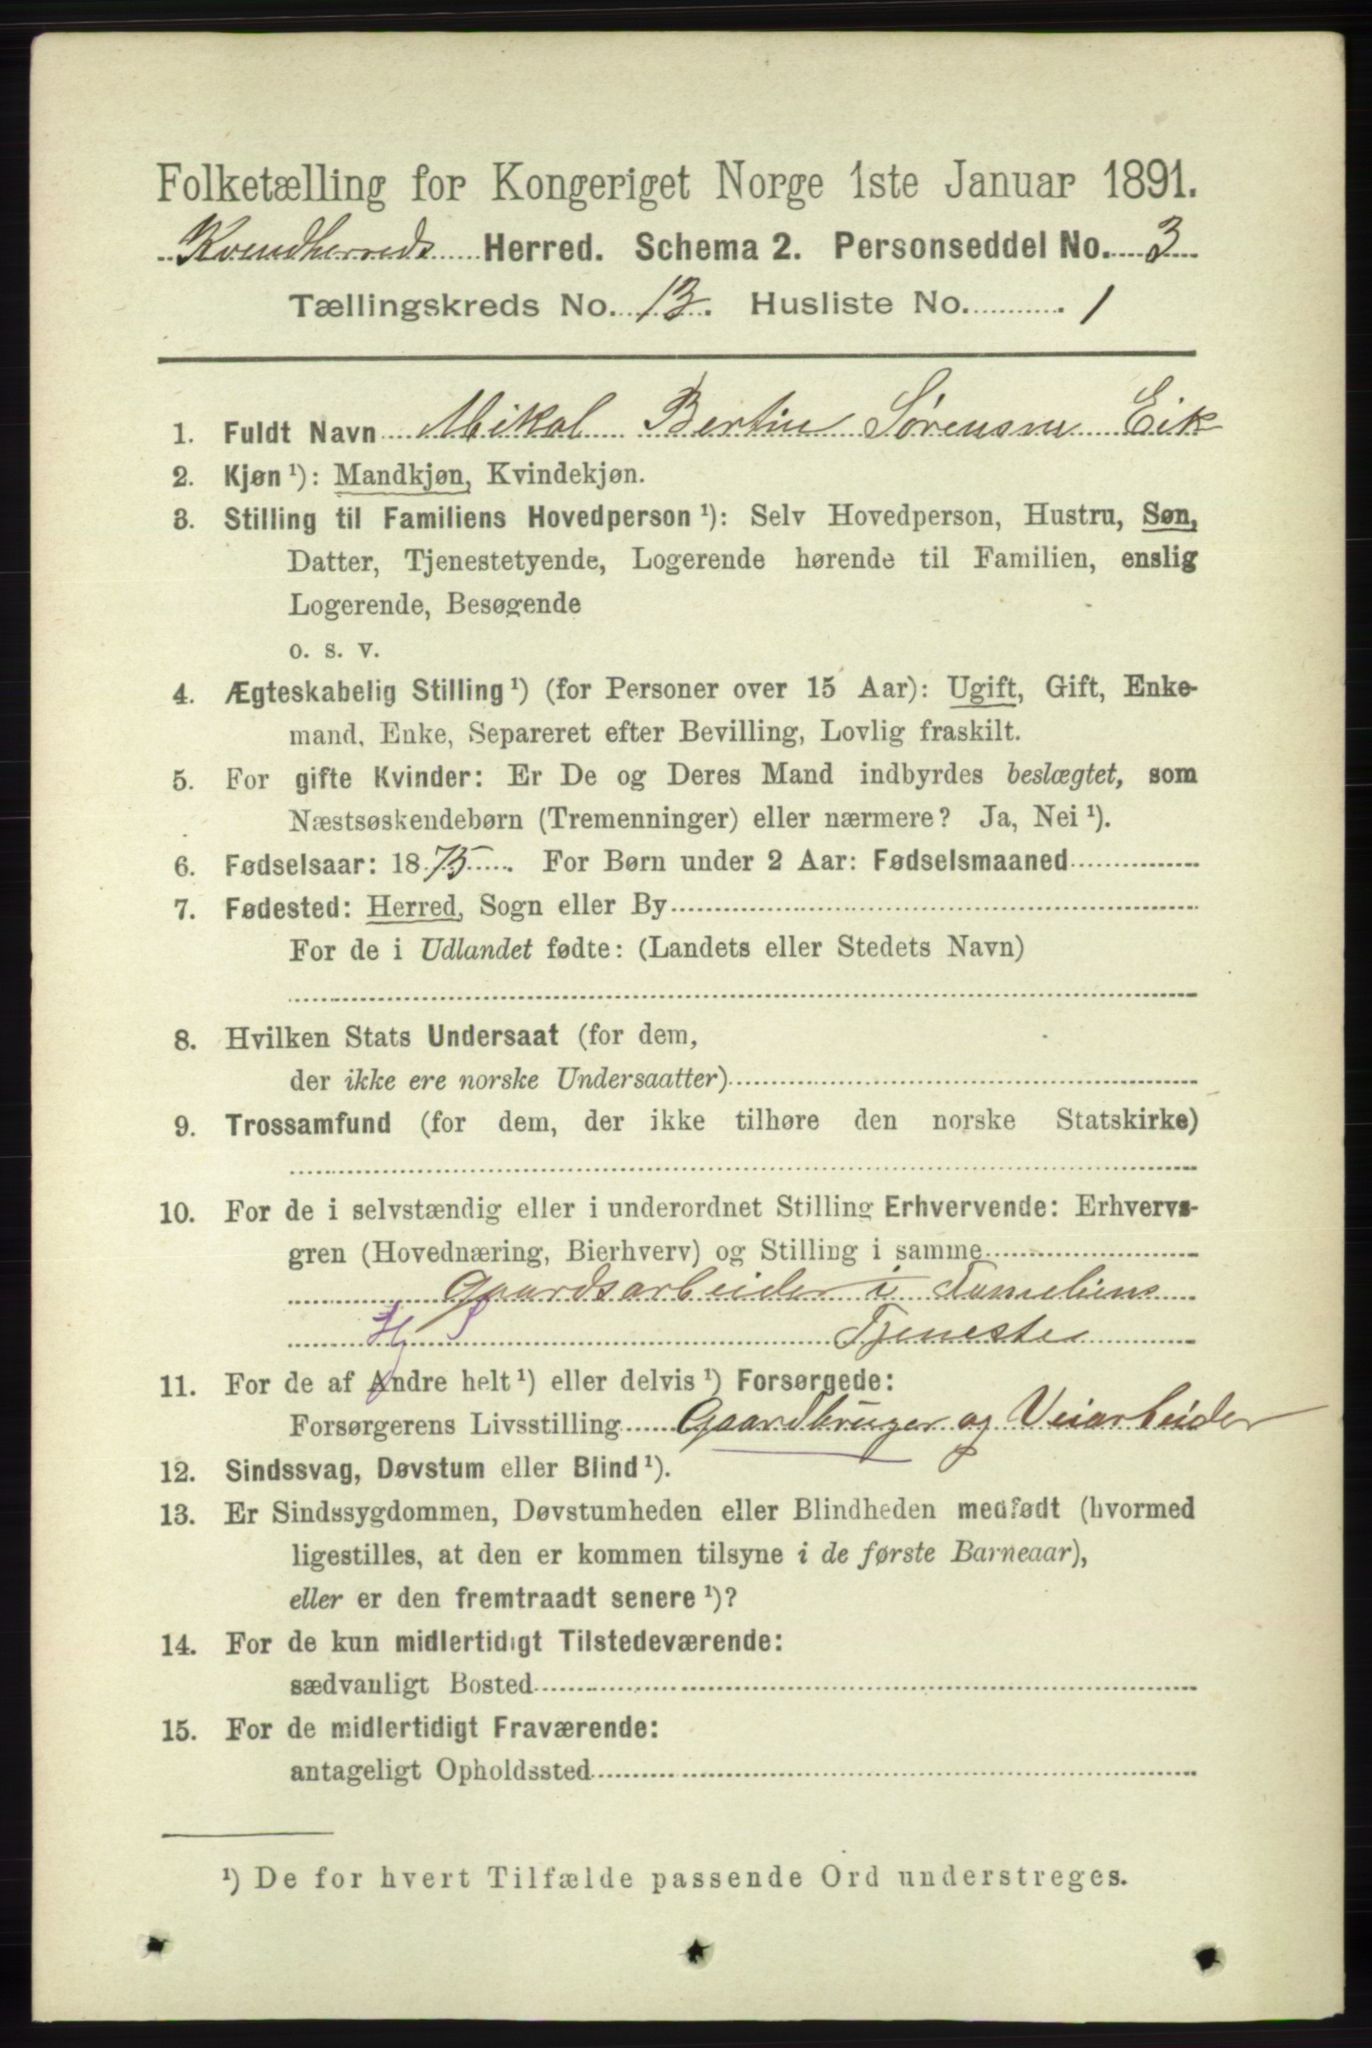 Folketælling for Kongeriget Norge 1ste Januar 1891.
Kvindherreds Herred. Schema 2. Personseddel No. 3
Tællingskreds No. 13. Husliste No. 1
1. Fuldt Navn Mikal Bertin Sørensen Eik
2. Kjøn ¹): Mandkjøn, Kvindekjøn.
3. Stilling til Familiens Hovedperson ¹): Selv Hovedperson, Hustru, Søn,
Datter, Tjenestetyende, Logerende hørende til Familien, enslig
Logerende, Besøgende
o. s. v.
4. Ægteskabelig Stilling ¹) (for Personer over 15 Aar): Ugift, Gift, Enke-
mand, Enke, Separeret efter Bevilling, Lovlig fraskilt.
5. For gifte Kvinder: Er De og Deres Mand indbyrdes beslægtet, som
Næstsøskendebørn (Tremenninger) eller nærmere? Ja, Nei ¹).
6. Fødselsaar: 1875. For Børn under 2 Aar: Fødselsmaaned
7. Fødested: Herred, Sogn eller By
For de i Udlandet fødte: (Landets eller Stedets Navn)
8. Hvilken Stats Undersaat (for dem,
der ikke ere norske Undersaatter)
9. Trossamfund (for dem, der ikke tilhøre den norske Statskirke)
10. For de i selvstændig eller i underordnet Stilling Erhvervende: Erhvervs-
gren (Hovednæring, Bierhverv) og Stilling i samme
Gaardsarbeider i Familiens
Tjeneste
11. For de af Andre helt ¹) eller delvis ¹) Forsørgede:
Forsørgerens Livsstilling Gaardbruger og Veiarbeider
12. Sindssvag, Døvstum eller Blind ¹).
13. Er Sindssygdommen, Døvstumheden eller Blindheden medfødt (hvormed
ligestilles, at den er kommen tilsyne i de første Barneaar),
eller er den fremtraadt senere ¹)?
14. For de kun midlertidigt Tilstedeværende:
sædvanligt Bosted
15. For de midlertidigt Fraværende:
antageligt Opholdssted
¹) De for hvert Tilfælde passende Ord understreges.